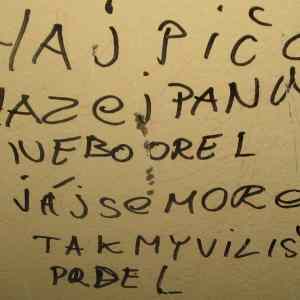 HAj PičO
HAZej PANU
NEBO OREL
jÁjSEMORE
TAKMYVILIŠ
PRDEL